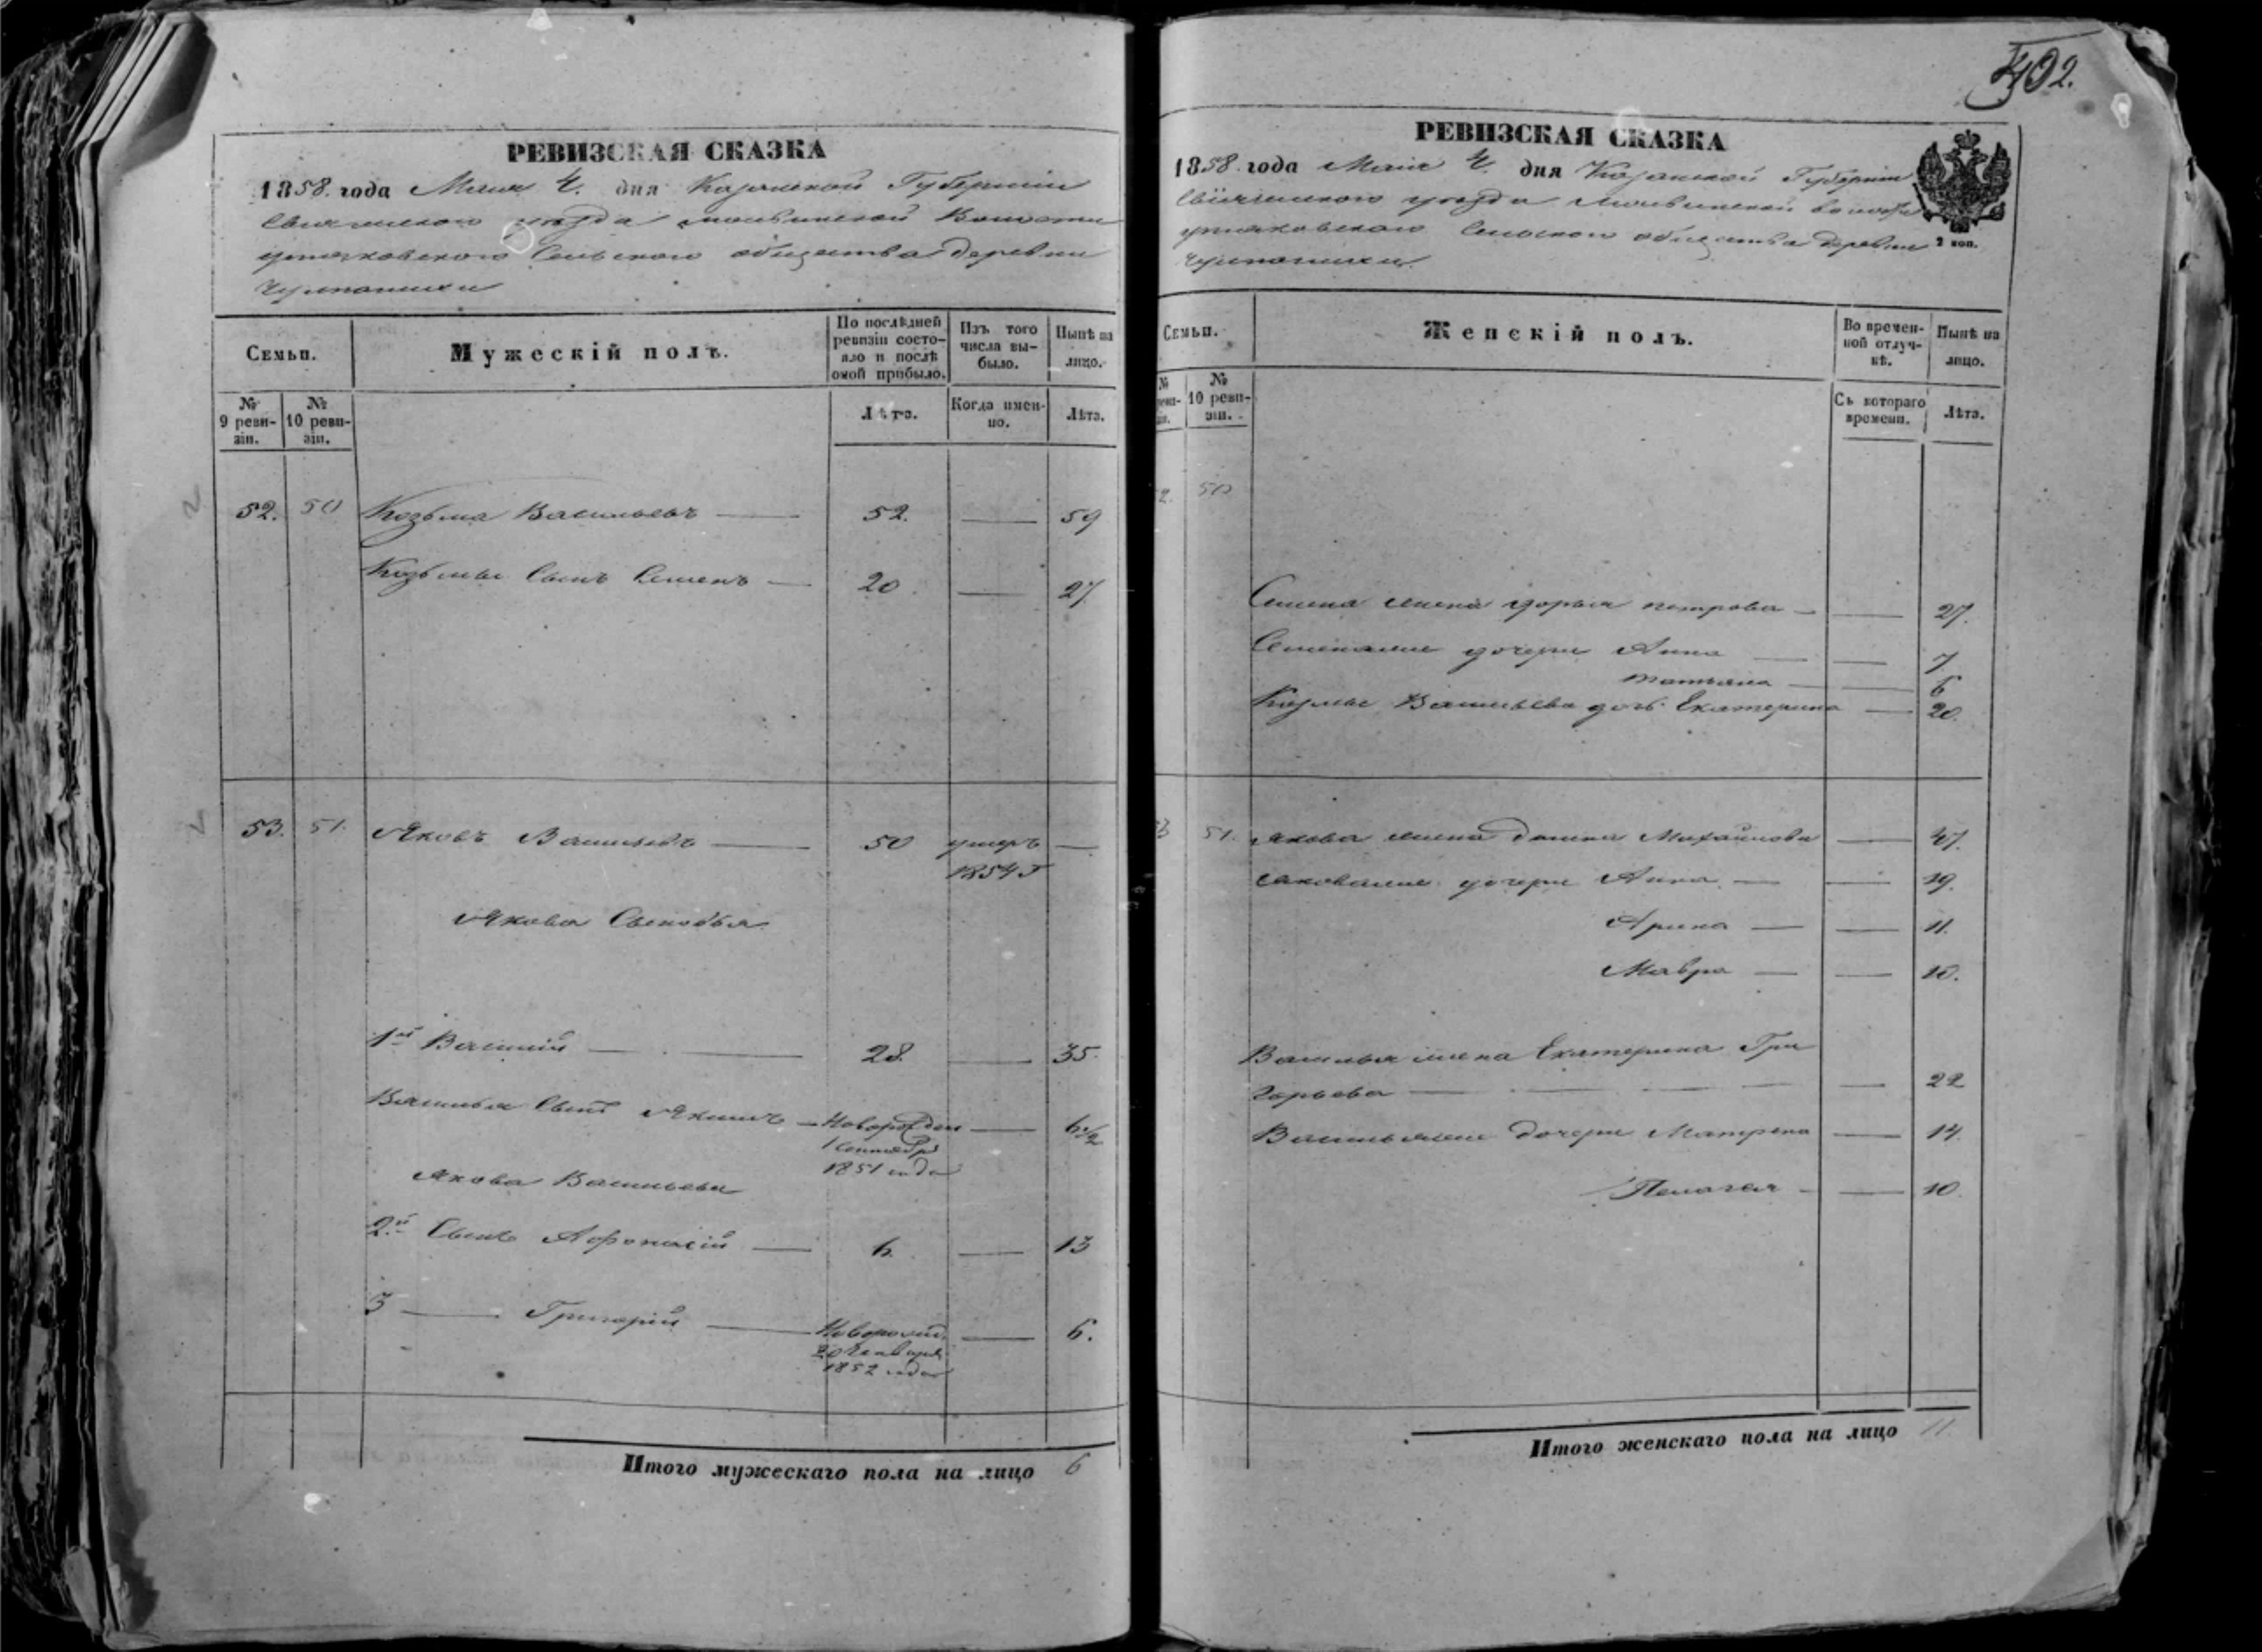 402.
РЕВИЗСКАЯ СКАЗКА
1858 года Маия 4. дня Казанской Губернии
Свияжскаго уезда Волости
Сельскаго общества деревни
Семьи.
Мужескій полъ.
По послѣдней ревизіи состояло и послѣ оной прибыло.
Изъ того числа выбыло.
Нынѣ на лицо.
№ 9 ревизіи.
№ 10 ревизіи.
Лѣта.
Когда именно.
Лѣта.
52. 50 Козьма Васильевъ — 52. — 59
Козьмы Сынъ Семенъ — 20 — 27.
53. 51. Яковъ Васильевъ — 50 умеръ —
1854 г
Якова Сыновья
1й Василій — 28. — 35.
Василья Сынъ Якимъ — Новорожден — 6 1/2
1 Сентября
1851 года
Якова Васильева
2й Сынъ Афонасій — 6. — 13
3 — Григорій — Новорожд. — 6.
20 Генваря
1852 года
Итого мужескаго пола на лицо 6
РЕВИЗСКАЯ СКАЗКА
1858 года Маия 4. дня Казанской Губернии
Свияжскаго уезда волости
Сельскаго общества деревни
2 коп.
Семьи.
Женскій полъ.
Во временной отлучкѣ.
Нынѣ на лицо.
№ 10 ревизіи.
Съ котораго времени.
Лѣта.
50
Семена жена Дарья петрова — — 27.
Семеновы дочери Анна — — 7
татьяна — — 6
Козмы Васильева дочь Екатерина — 20.
51. Якова жена Михайлова — 47.
Яковлевы дочери Анна — — 19.
Арина — — 11.
Мавра — — 10.
Василья жена Екатерина Гри
горьева — — 22
Васильевы дочери Матрена — 14.
Пелагея — — 10.
Итого женскаго пола на лицо 11.